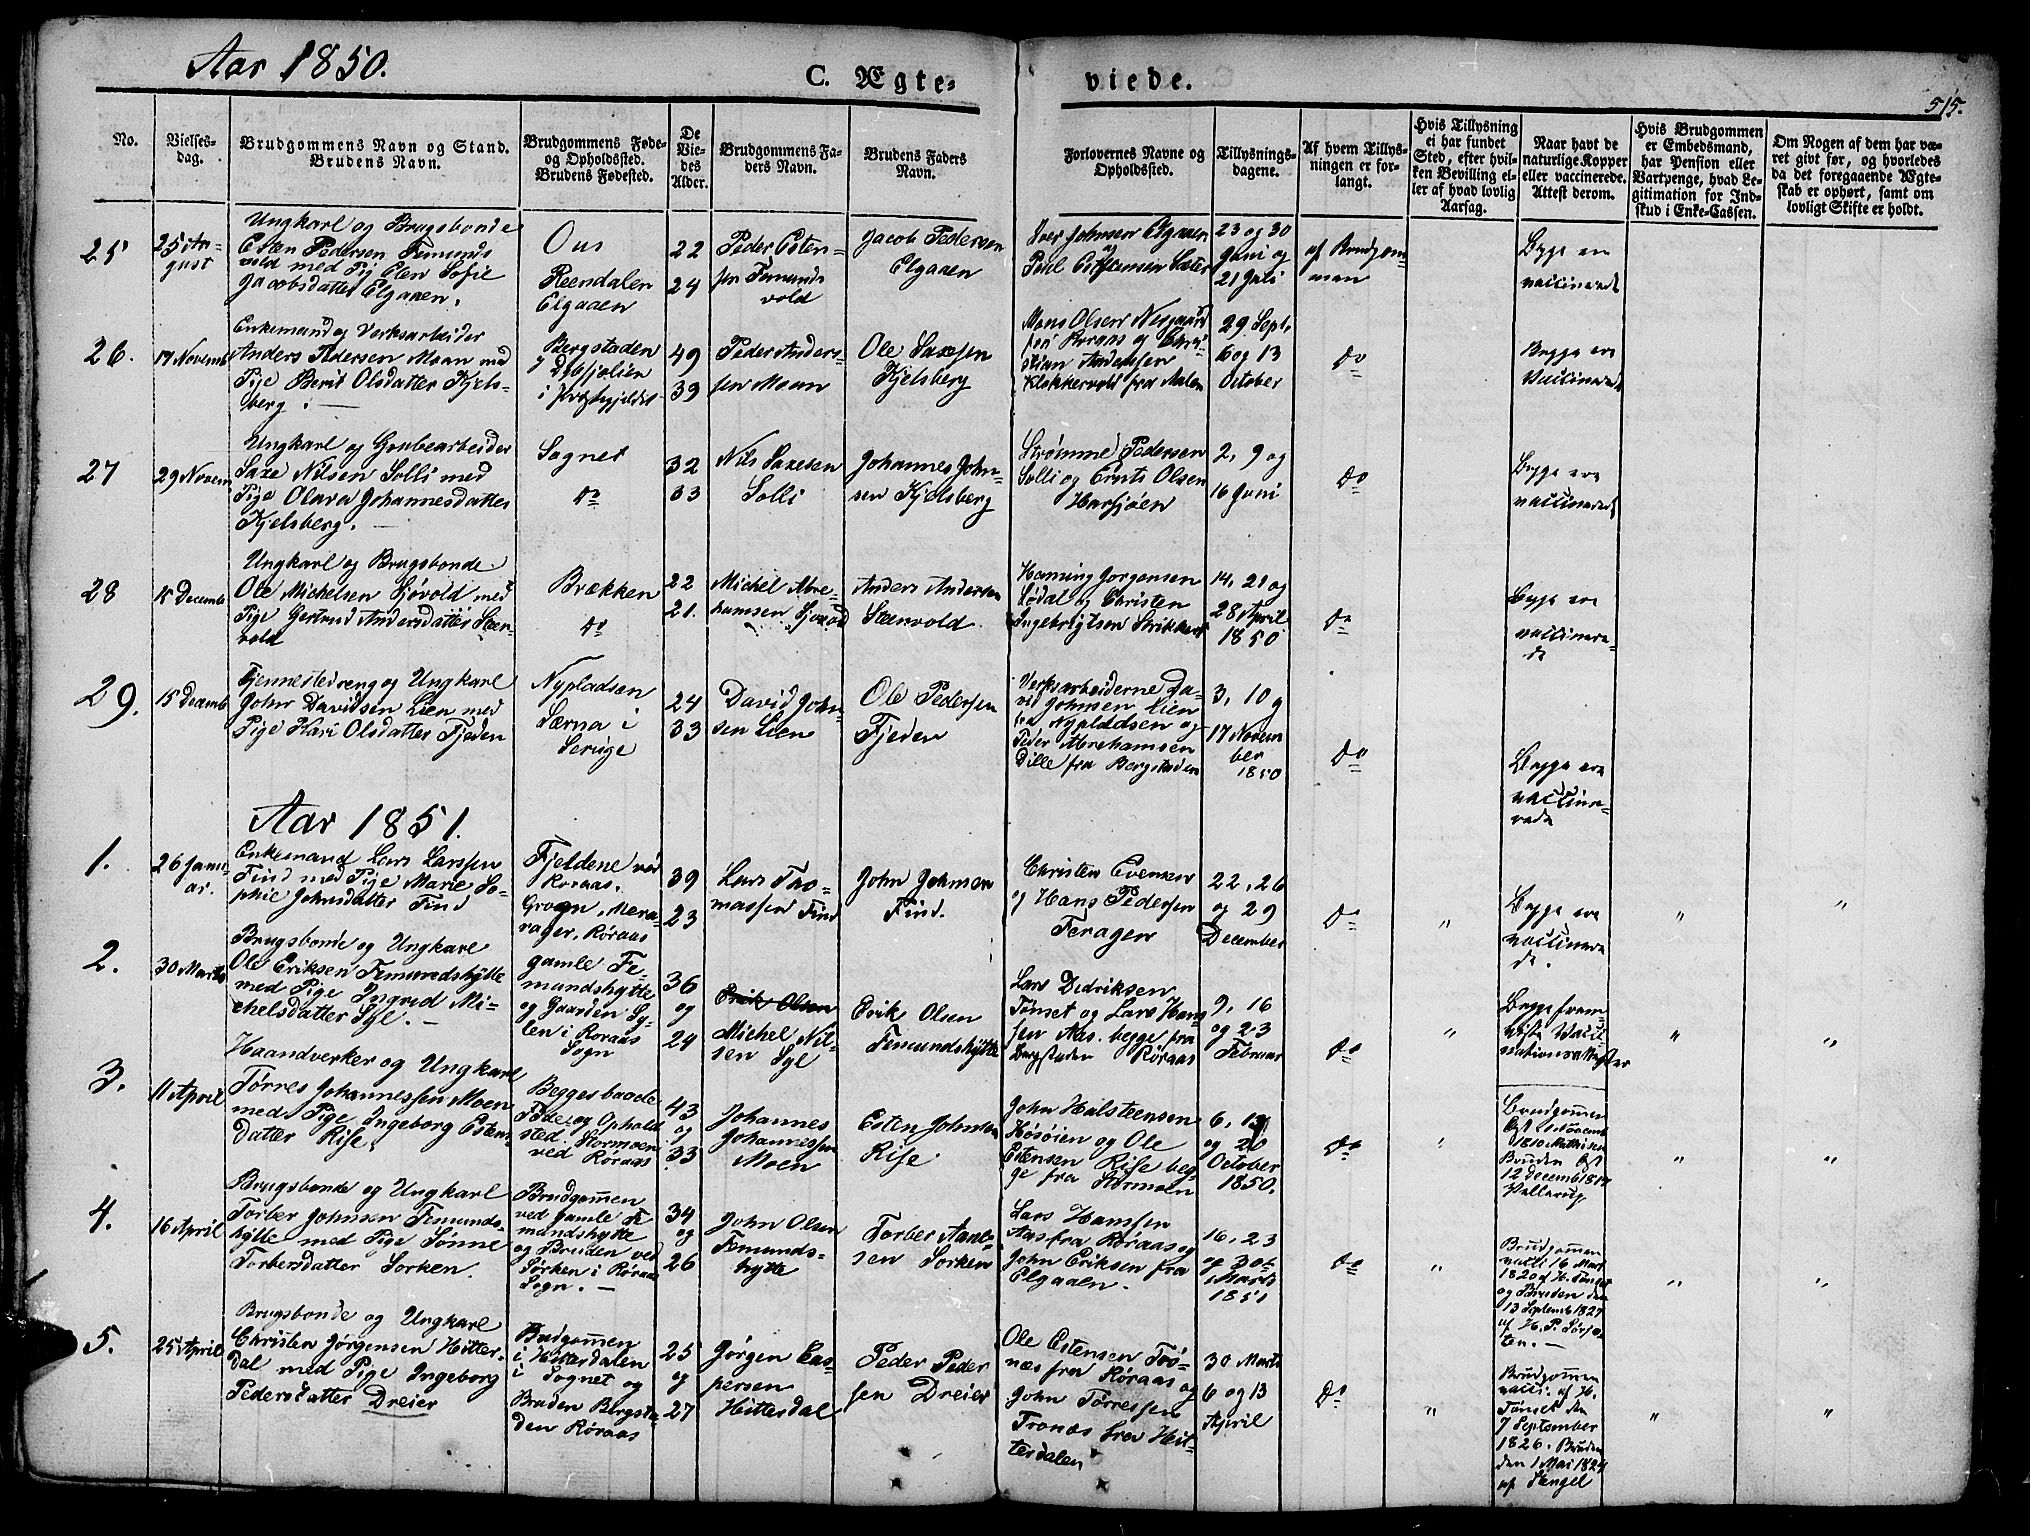 Aar 1850.
C. Ægte-
viede.
515.
No.
Vielses-
dag.
Brudgommens Navn og Stand.
Brudens Navn.
Brudgommens Føde-
og Opholdssted.
Brudens Fødested.
De
Vie-
des
Alder.
Brudgommens Fa-
ders Navn.
Brudens Faders
Navn.
Forlovernes Navne og
Opholdssted.
Tillysnings-
dagene.
Af hvem Tillys-
ningen er for-
langt.
Hvis Tillysning
ei har fundet
Sted, efter hvil-
ken Bevilling el-
ler af hvad lovlig
Aarsag.
Naar havt de
naturlige Kopper
eller vaccinerede.
Attest derom.
Hvis Brudgommen
er Embedsmand,
har Pension eller
Vartpenge, hvad Le-
gitimation for Ind-
skud i Enke-Cassen.
Om Nogen af dem har væ-
ret givt før, og hvorledes
da det foregaaende Ægte-
skab er ophørt, samt om
lovligt Skifte er holdt.
25
25 Au-
gust
Ungkarl og Brugsbonde
Esten Pedersen Femunds
vold med Pig Elen Sofie
Jacobsdatter Elgaaen.
Ous
Reendalen
Elgaaen
22
24
Peder Esten-
sen Femunds
vold
Jacob Pedersen
Elgaaen
Iver Johnsen Elgaaen
og
Poul Christensen Sæter
23 og 30
Juni og
21 Juli
af Brudgom-
men
Begge ere
vaccinerede
26.
17 Novemb
Enkemand og Verksarbeider
Anders Pedersen Moan med
Pige Berit Olsdatter Kjels-
berg. —
Bergstaden
i Præstegjeldet
49
39
Peder Anders-
sen Moan
Ole Saxesen
Kjelsberg
Mons Olsen Nesgaard
fra Roraas og Chri-
stian Andersen
Klokkervold fra Aalen
29 Sept,
6 og 13
October
Do
Begge ere
Vaccinerede
27
29 Novem
Ungkarl og Grubearbeider
Saxe Nilsen Solli med
Pige Olava Johannesdatter
Kjelsberg. —
Sognet
Do
32
33
Nils Saxesen
Solli
Johannes John-
sen Kjelsberg
Strømme Pedersen
Solli og Ernts Olsen
Harsjøen
2, 9 og
16 Juni
Do
Begge ere
vaccinerede
28
15 Decemb
Ungkarl og Brugsbonde
Ole Michelsen Sjøvold med
Pige Gertrud Andersdatter Steen-
vold
Brækken
Do
22
21.
Michel Abre-
hamsen Sjøvold
Anders Andersen
Steenvold.
Haming Jorgensen
Lødal og Christen
Ingebrigtsen Strikkert
14, 21 og
28 April
1850
Do
Begge ere
vaccinere-
de
29.
15 Decemb
Tjennestedreng og Ungkarl
John Davidsen Lien med
Pige Kari Olsdatter Fjeden
Nypladsen
Særna i
Sverige
24
33
David John-
sen Lien
Ole Pedersen
Fjeden
Verksarbeiderne Da-
vid Johnsen Lien
fra Nypladsen og
Peder Abrehamsen
Dille fra Bergstaden
3, 10 g
17 Novem
ber
1850
Do
Begge ere
vaccine-
rede
Aar 1851.
1.
26 Janu-
ar.
Enkemand Lars Larssen
Find med Pige Marie So-
phie Johnsdatter Find
Fjeldene ved
Roraas.
39
23
Lars Tho-
massen Find
John Johnsen
Find.
Christen Evensen
og Hans Pedersen
Feragen
22, 26
og 29
December
Do
"
Begge ere
vaccinere
de.
"
"
2.
30 Marts
Brugsbonde og Ungkarl
Ole Eriksen Femundshytte
med Pige Ingrid Mi-
chelsdatter Syl. —
gamle Fe-
mundshytte
og Gaarden Sy-
len i Roraas
Sogn
36
og
24
Erik Olsen
Michel Nil-
sen Syl
Erik Olsen
Femundshytte
Lars Dedriksen
Tønset og Lars Han-
sen Aas. begge fra
Bergstaden Røraas
9, 16
og 23
Februar
Do
"
Begge frem-
viste Vacci
nationsattester
"
"
3.
11 April
Haandverker og Ungkarl
Tørres Johannessen Moen
med Pige Ingeborg Estens-
datter Rise.
Begges baade
Føde og Ophold
sted, Stormoen
ved Røraas
43
og
33
Johannes
Johannessen
Moen
Esten Johnsen
Rise.
John Halsteensen
Høsøien og Ole
Estensen Rise beg-
ge fra Stormoen
6, 13
og 20
October
1850.
Do
"
Brudgommen
1 Novemb
1810 Mathisen
Bruden
12 Decemb 1817
"
"
4.
16 April
Brugsbonde og Ungkarl
Torber Johnsen Femunds-
hytte med Pige Sønne
Torbersdatter Sorken.
Brudgommen
ved gamle Fe
mundshytte
og Bruden ved
Sørken i Røraas
Sogn. —
34
og
26
John Olsen
Femunds-
hytte
Torber Aane-
sen Sorken
Lars Hansen
Aas fra Røraas og
John Eriksen fra
Elgaaen.
16, 23
og 30t
Marts
1851
Do
"
Brudgommen
vacci 16 Mart
1820 af H. Tønset
og Bruden den
13 Septemb 1827
af H. P. Sørje-
ten. —
"
"
5.
25 April
Brugsbonde og Ungkarl
Christen Jørgensen Hitter-
dal med Pige Ingeborg
Pedersdatter Dreier
Brudgommen
i Hitterdalen
i Sognet og
Bruden Bergsta-
den Røraas
25
og
27
Jørgen Cas-
persen
Hitterdal
Peder Peder
sen Dreier
Ole Estensen Trø-
næs fra Røraas og
John Tørressen
Tronæs fra Hit-
terdalen
30 Marts
6 og 13
April
Do
"
Brudgommen
vacci. af H.
Tønset den
7 September
1826. Bruden
den 1 Mai 1824
af Stengel
"
"